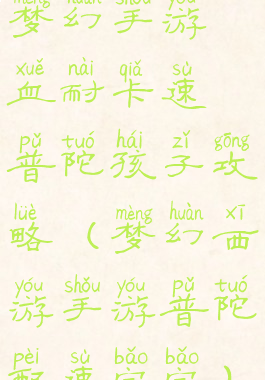 mèng huàn shǒu yóu
梦幻手游
xuè nài qiǎ sù
血耐卡速
pǔ tuó hái zǐ gōng
普陀孩子攻
lüè mèng huàn xī
略（梦幻西
yóu shǒu yóu pǔ tuó
游手游普陀
pèi sù bǎo bǎo
配速宝宝）